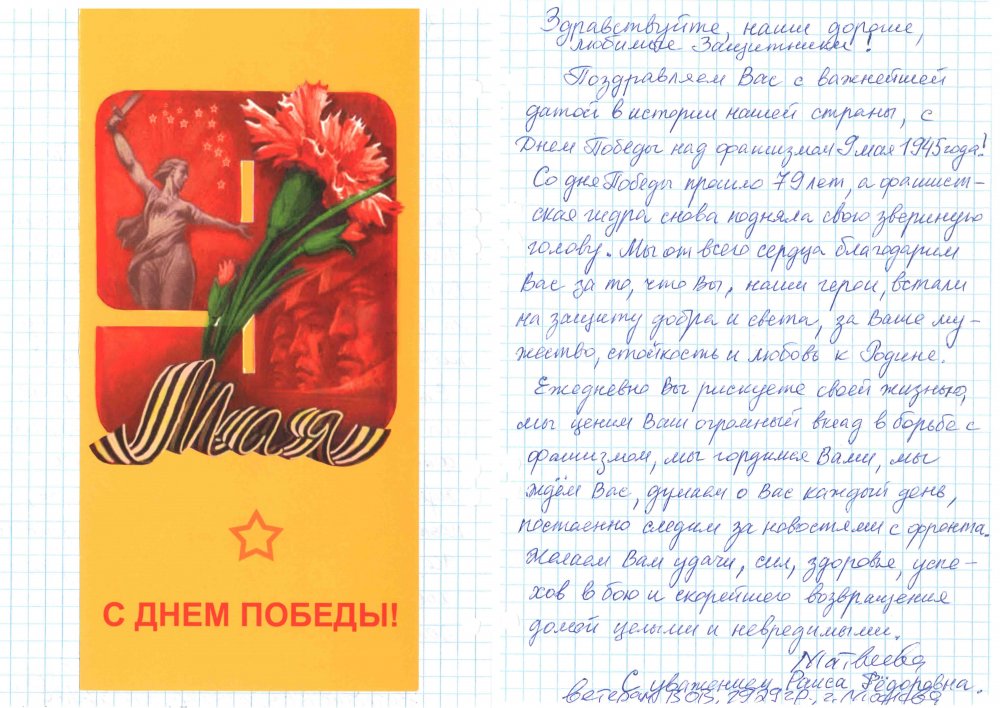 9
мая
С ДНЕМ ПОБЕДЫ!
Здравствуйте, наши дорогие,
любимые Защитники!
Поздравляем Вас с важнейшей
датой в истории нашей страны, с
Днем Победы над фашизмом 9 мая 1945 года!
Со дня Победы прошло 79 лет, а фашист-
ская гидра снова подняла свою звериную
голову. Мы от всего сердца благодарим
Вас за то, что Вы, наши герои, встали
на защиту добра и света, за Ваше му-
жество, стойкость и любовь к Родине.
Ежедневно Вы рискуете своей жизнью,
мы ценим Ваш огромный вклад в борьбе с
фашизмом, мы гордимся Вами, мы
ждём Вас, думаем о Вас каждый день,
постоенно следим за новостями с фронта.
Желаем Вам удачи, сил, здоровье, успе-
хов в бою и скорейшего возвращения
домой целыми и невредимыми.
Матвеева
С уважением Раиса Фёдоровна.
Ветеран г.р., г.